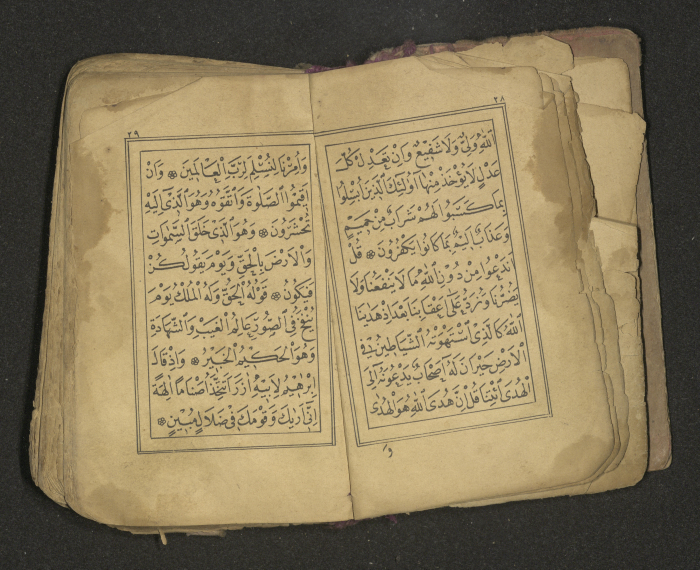 ٢٨
اللّٰهِ وَلِىٌّ وَلَا شَفِيعٌ وَاِنْ تَعْدِلْ كُلَّ
عَدْلٍ لَا يُؤْخَذْ مِنْهَا اُولٰئِكَ الَّذِينَ اُبْسِلُوا
بِمَا كَسَبُوا لَهُمْ شَرَابٌ مِنْ حَمِيمٍ
وَعَذَابٌ اَلِيمٌ بِمَا كَانُوا يَكْفُرُونَ ۞ قُلْ
اَنَدْعُوا مِنْ دُونِ اللّٰهِ مَا لَا يَنْفَعُنَا وَلَا
يَضُرُّنَا وَنُرَدُّ عَلٰى اَعْقَابِنَا بَعْدَ اِذْ هَدٰينَا
اللّٰهُ كَالَّذِى اسْتَهْوَتْهُ الشَّيَاطِينُ فِى
الْاَرْضِ حَيْرَانَ لَهُ اَصْحَابٌ يَدْعُونَهُ اِلَى
الْهُدَى ائْتِنَا قُلْ اِنَّ هُدَى اللّٰهِ هُوَ الْهُدٰى
و
٢٩
وَاُمِرْنَا لِنُسْلِمَ لِرَبِّ الْعَالَمِينَ ۞ وَاَنْ
اَقِيمُوا الصَّلٰوةَ وَاتَّقُوهُ وَهُوَ الَّذِى اِلَيْهِ
تُحْشَرُونَ ۞ وَهُوَ الَّذِى خَلَقَ السَّمٰوَاتِ
وَالْاَرْضَ بِالْحَقِّ وَيَوْمَ يَقُولُ كُنْ
فَيَكُونُ ۞ قَوْلُهُ الْحَقُّ وَلَهُ الْمُلْكُ يَوْمَ
يُنْفَخُ فِى الصُّورِ عَالِمُ الْغَيْبِ وَالشَّهَادَةِ
وَهُوَ الْحَكِيمُ الْخَبِيرُ ۞ وَاِذْ قَالَ
اِبْرٰهِيمُ لِاَبِيهِ اٰزَرَ اَتَتَّخِذُ اَصْنَامًا اٰلِهَةً
اِنِّى اَرٰيكَ وَقَوْمَكَ فِى ضَلَالٍ مُبِينٍ ۞